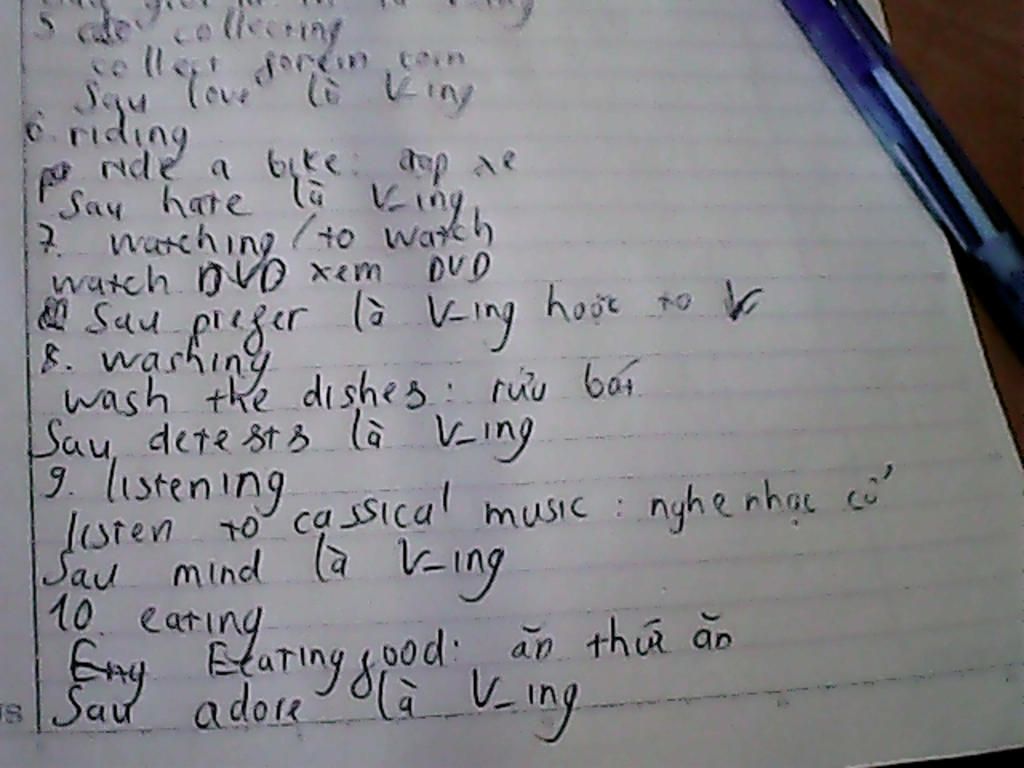 5 collecting
collect coin
Sau love là V-ing
6. riding
ride a bike: đạp xe
Sau hate là V-ing
7. watching / to watch
watch DVD xem DVD
Sau prefer là V-ing hoặc to V
8. washing
wash the dishes: rửu bát
Sau detests là V-ing
9. listening
listen to cassical music: nghe nhạc cổ
Sau mind là V-ing
10. eating
Eating food: ăn thứ ăn
Sau adore là V-ing